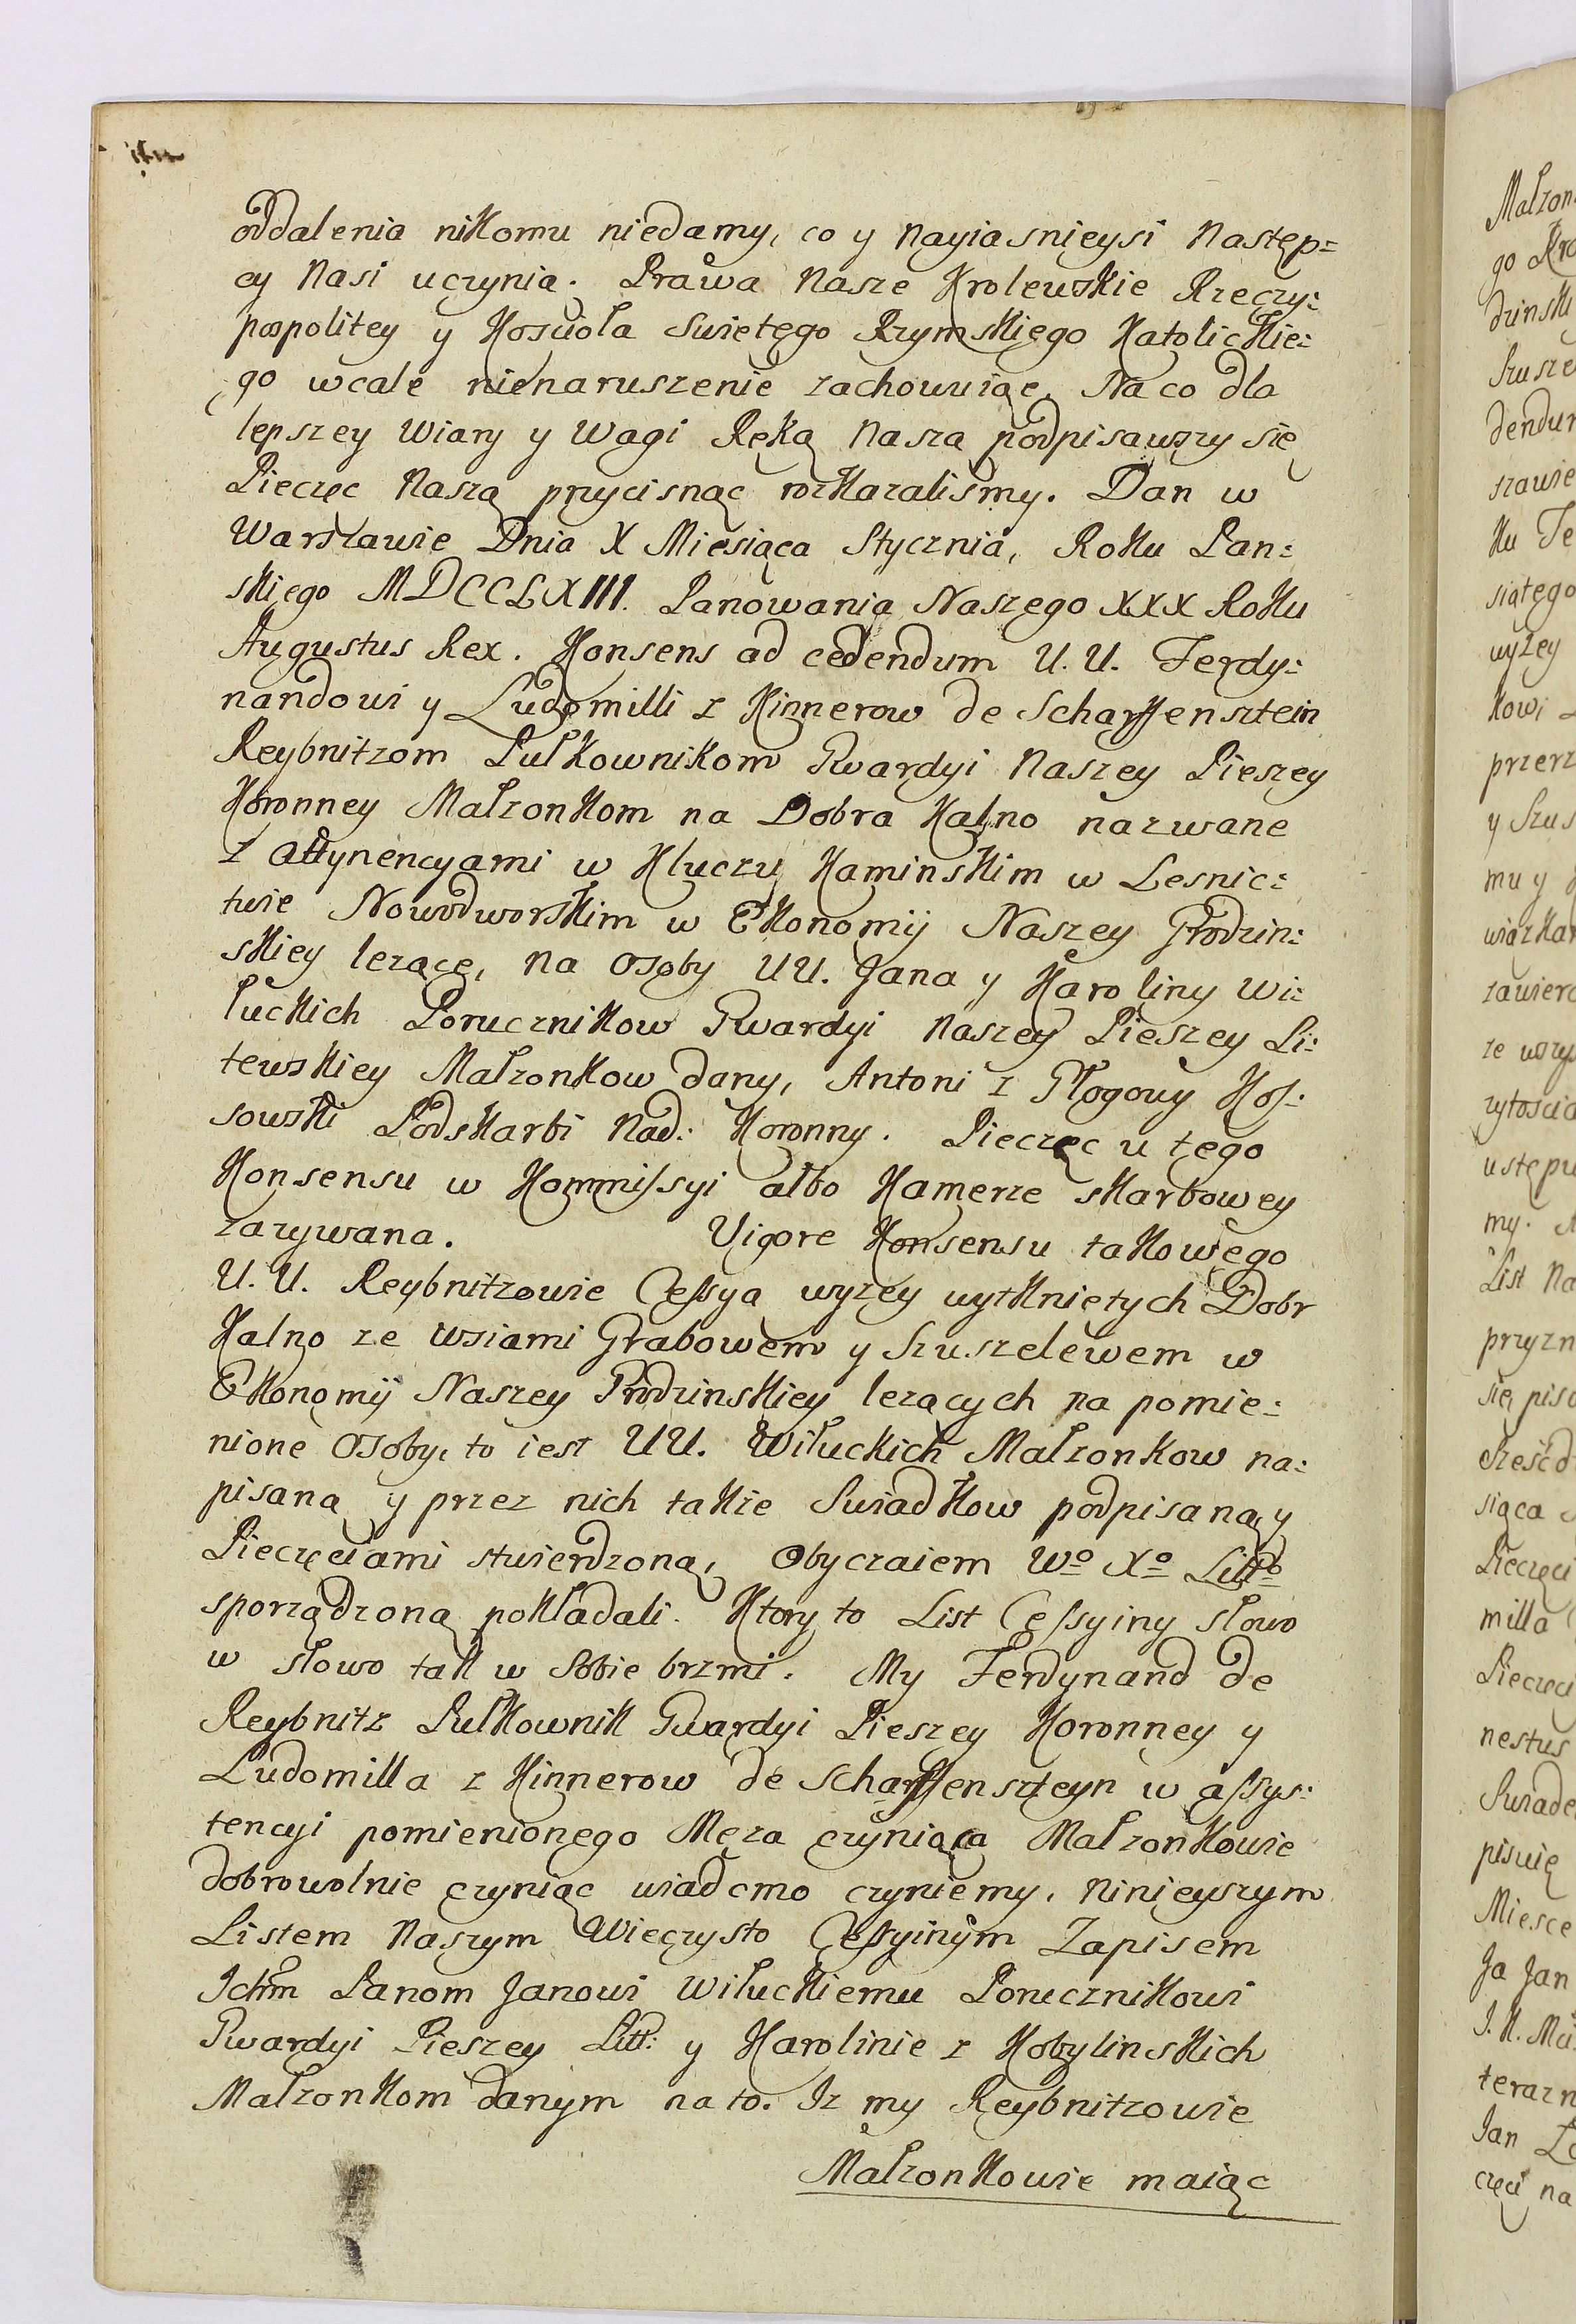 oddalenia nikomu niedamy, co y Nayiasnieysi Następ=
cy Nasi uczynią. Prawa Nasze Krolewskie Rzeczy:
pospolitey y Kosciola Swiętego Rzymskiego Katolickie:
go wcale nienaruszenie zachowuiąc. Na co dla
lepszey Wiary y Wagi Ręką Naszą podpisawszy się
Pieczęc Naszą przycisnąc rozkazalismy. Dan w
Warszawie Dnia X Miesiąca Stycznia, Roku Pan:
skiego MDCCLXIII. Panowania Naszego XXX Roku
Augustus Rex. Konsens ad cedendum U. U. Ferdy:
nandowi y Ludomilli z Kinnerow de Scharffensztein
Reybnitzom Pułkownikom Gwardyi Naszey Pieszey
Koronney Małzonkom na Dobra Kalno nazwane
z attynencyami w Kluczu Kaminskim w Lesnic:
twie Nowodworskim w Ekonomij Naszey Grodzin:
skiey lezące, na Osoby UU. Jana y Karoliny Wi:
łuckich Porucznikow Gwardyi Naszey Pieszey Li:
tewskiey Małzonkow dany, Antoni z Głogowy Kos:
sowski Podskarbi Nad: Koronny. Pieczęc u tego
Konsensu w Kommissyi albo Kamerze skarbowey
zazywana. Vigore Konsensu takowego
U. U. Reybnitzowie Cessyą wyzey wytknietych Dobr
Kalno ze wsiami Grabowem y Szuszelewem w
Ekonomij Naszey Grodzinskiey lezących na pomie:
nione Osoby, to iest UU. Wiłuckich Małzonkow na:
pisaną y przez nich takze Swiadkow podpisaną y
Pieczęciami stwierdzoną, Obyczaiem Wo Xo Litto
sporządzoną pokładali. Ktory to List Cessyiny słowo
w słowo tak w Sobie brzmi. My Ferdynand de
Reybnitz Pułkownik Gwardyi Pieszey Koronney y
Ludomilla z Kinnerow de Scharffenszteyn w assys:
tencyi pomienionego Męza czyniąca Małzonkowie
dobrowolnie czyniąc wiadomo czyniemy, ninieyszym
Listem Naszym Wieczysto Cessyinym Zapisem
Ichm Panom Janowi Wiłuckiemu Porucznikowi
Gwardyi Pieszey Litt: y Karolinie z Kobylinskich
Małzonkom danym na to. Iz my Reybnitzowie
Małzonkowie maiąc